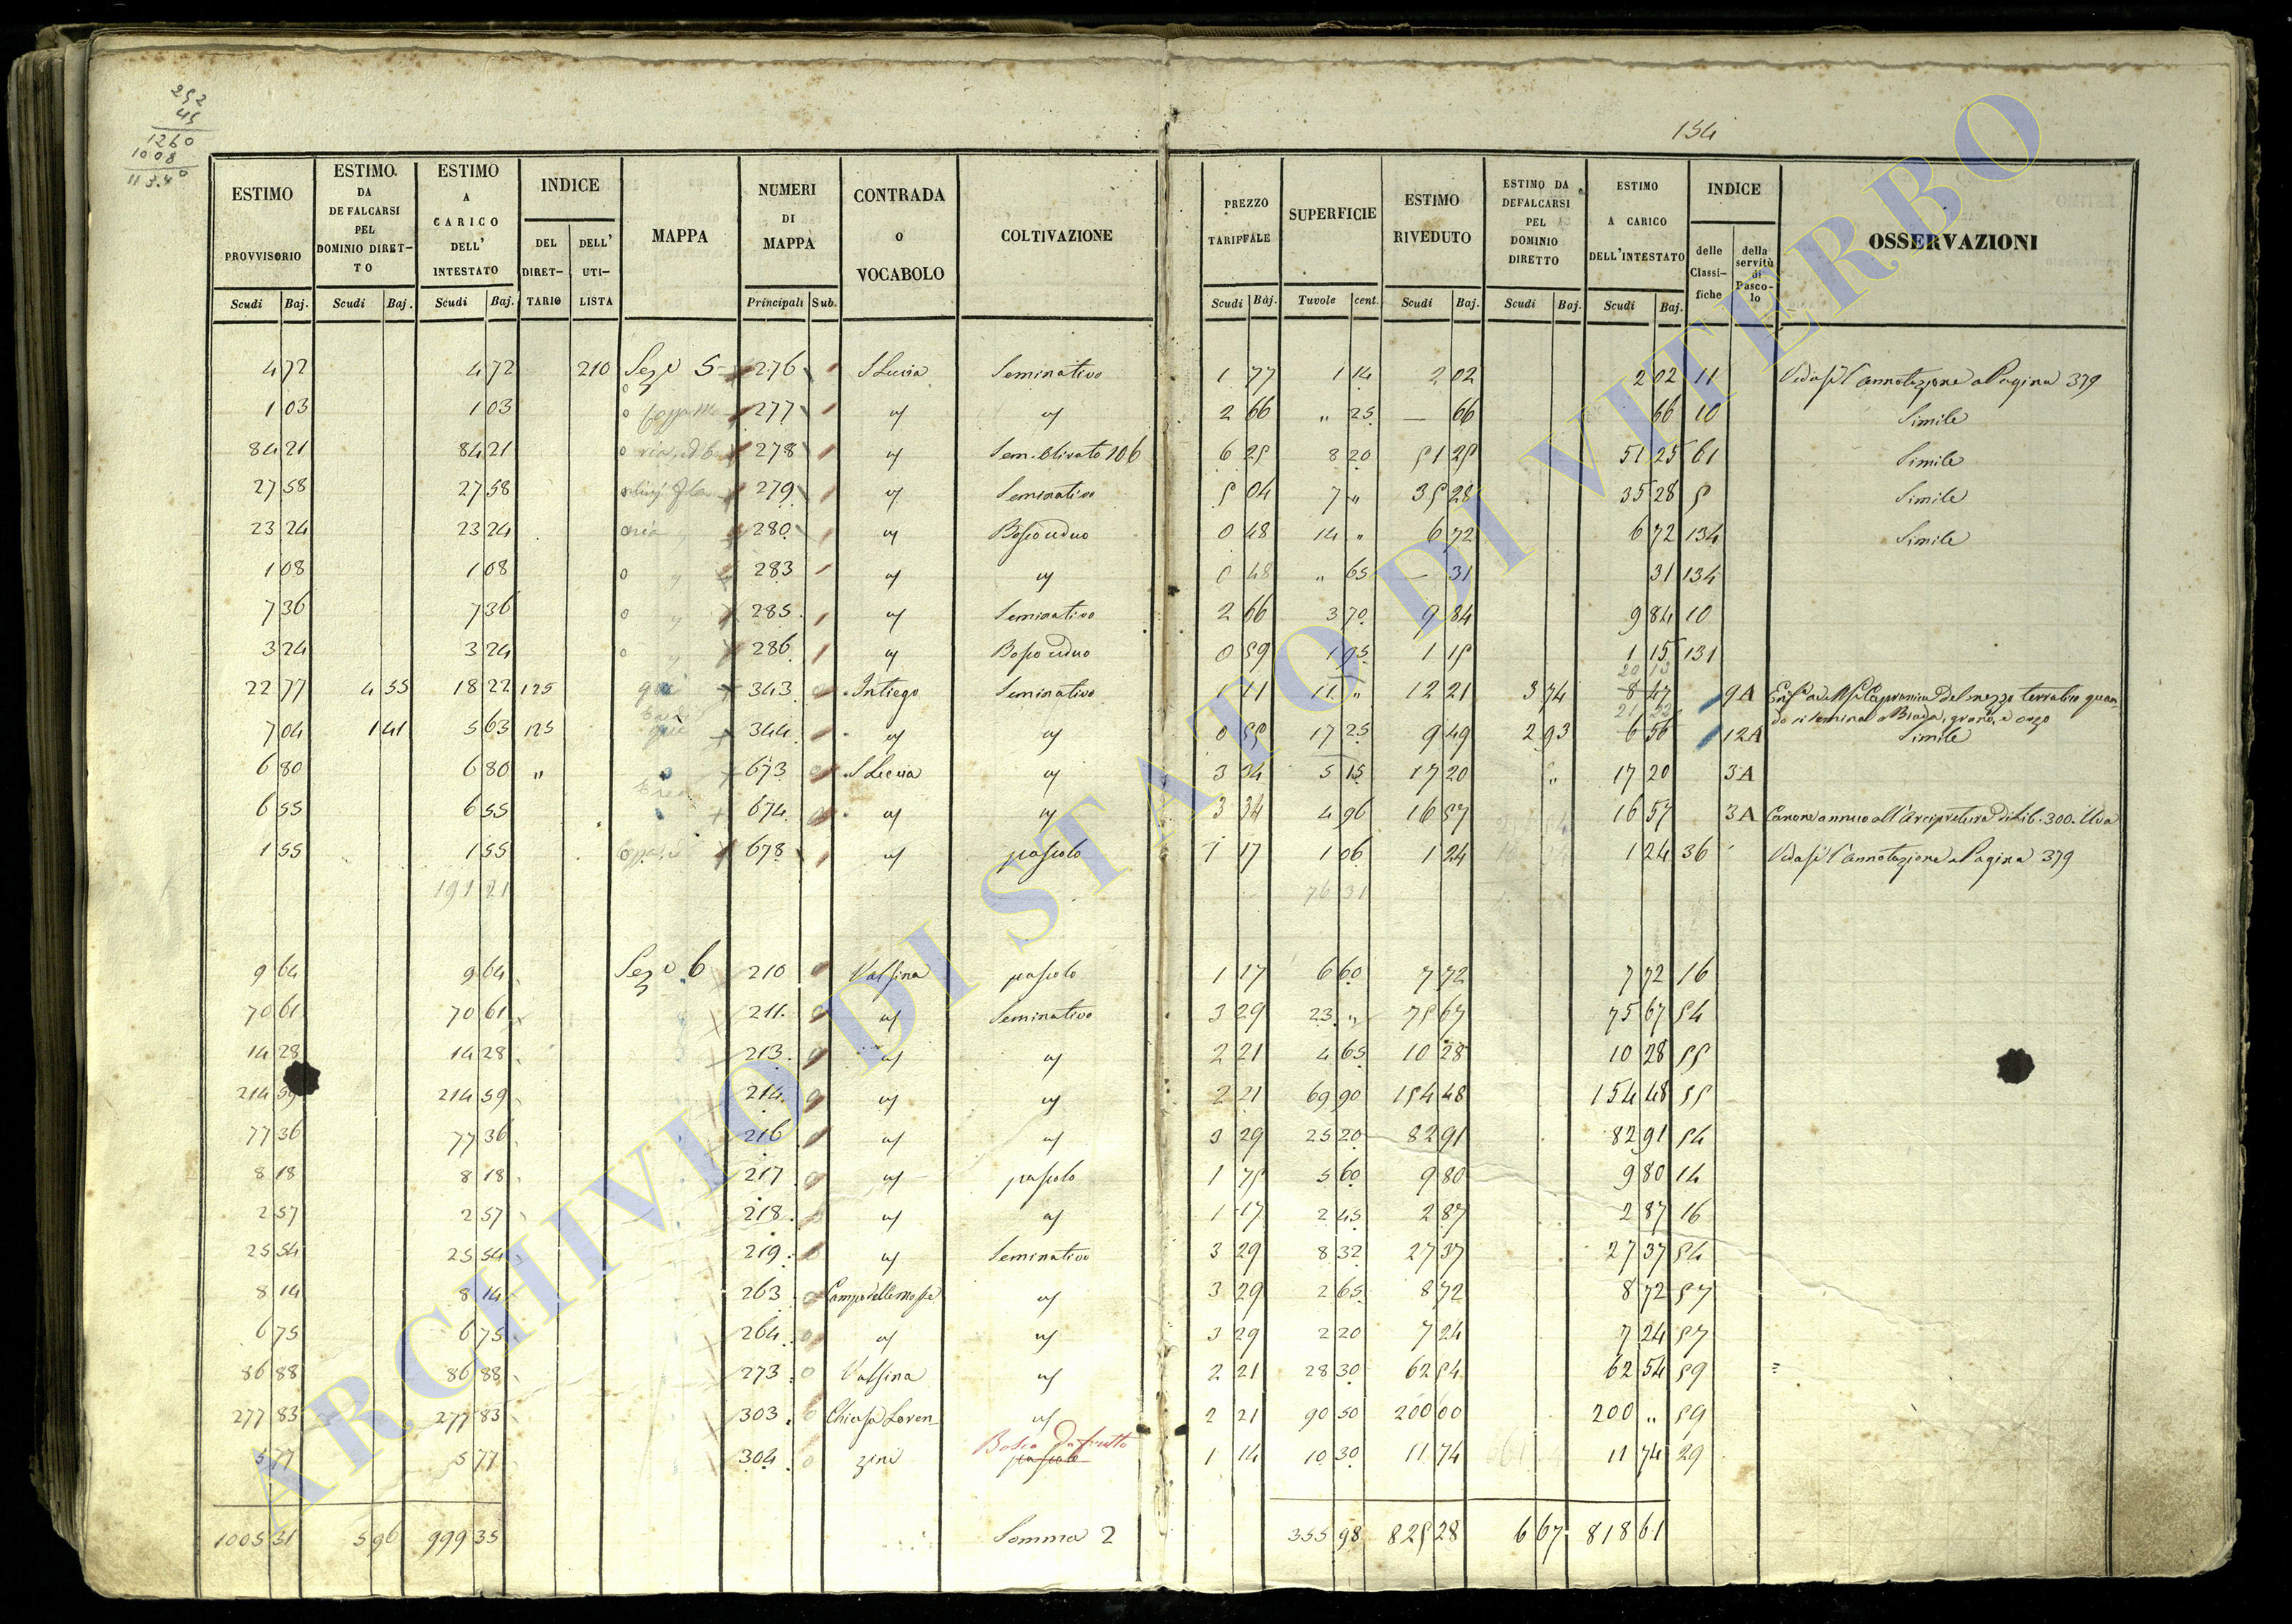 252
45
1260
1008
113.40
154
ESTIMO PROVVISORIO Scudi Baj.
ESTIMO DA DEFALCARSI PEL DOMINIO DIRET-TO Scudi Baj.
ESTIMO A CARICO DELL' INTESTATO Scudi Baj.
INDICE DEL DIRET-TARIO DELL' UTI-LISTA
MAPPA
NUMERI DI MAPPA Principali Sub.
CONTRADA O VOCABOLO
COLTIVAZIONE
PREZZO TARIFFALE Scudi Baj.
SUPERFICIE Tavole cent.
ESTIMO RIVEDUTO Scudi Baj.
ESTIMO DA DEFALCARSI PEL DOMINIO DIRETTO Scudi Baj.
ESTIMO A CARICO DELL'INTESTATO Scudi Baj.
INDICE delle Classi-fiche della servitù di Pasco-lo
OSSERVAZIONI
4 72 4 72 210 Sez.e 5 276 S Lucia Seminativo 1 77 1 14 2 02 2 02 11 Vedasi l'annotazione a Pagina 379
1 03 1 03 277 " " 2 66 " 25 — 66 66 10 Simile
84 21 84 21 278 " Sem. Olivato 106 6 25 8 20 51 25 51 25 61 Simile
27 58 27 58 279 " Seminativo 5 04 7 " 35 28 35 28 5 Simile
23 24 23 24 280 " Bosco ceduo 0 48 14 " 6 72 6 72 134 Simile
1 08 1 08 283 " " 0 48 " 65 — 31 31 134
7 36 7 36 285 " Seminativo 2 66 3 70 9 84 9 84 10
3 24 3 24 286 " Bosco ceduo 0 59 1 95 1 15 1 15 131
22 77 4 55 18 22 125 343 Intiego Seminativo 1 11 11 " 12 21 3 74 8 47 9A
7 04 1 41 5 63 125 344 " " 0 55 17 25 9 49 2 93 6 56 12A Simile
6 80 6 80 " 673 S Lucia " 3 34 5 15 17 20 " 17 20 3A
6 55 6 55 674 " " 3 34 4 96 16 57 16 57 3A Canone annuo all'Arcipretura di Lib. 300. Uva
1 55 1 55 678 " pascolo 1 17 1 06 1 24 1 24 36 Vedasi l'annotazione a Pagina 379
191 21 76 31
9 64 9 64 Sez.e 6 210 Valsina pascolo 1 17 6 60 7 72 7 72 16
70 61 70 61 211 " Seminativo 3 29 23 " 75 67 75 67 54
14 28 14 28 213 " " 2 21 4 65 10 28 10 28 55
214 59 214 59 214 " " 2 21 69 90 154 48 154 48 55
77 36 77 36 216 " " 3 29 25 20 82 91 82 91 54
8 18 8 18 217 " pascolo 1 75 5 60 9 80 9 80 14
2 57 2 57 218 " " 1 17 2 45 2 87 2 87 16
25 54 25 54 219 " Seminativo 3 29 8 32 27 37 27 37 54
8 14 8 14 263 " 3 29 2 65 8 72 8 72 57
6 75 6 75 264 " " 3 29 2 20 7 24 7 24 57
86 88 86 88 273 Valsina " 2 21 28 30 62 54 62 54 59
277 83 277 83 303 Chiusa Loren- " 2 21 90 50 200 00 200 " 59
Bosco da frutto
5 77 5 77 304 zini pascolo 1 14 10 30 11 74 11 74 29
1005 31 5 96 999 35 Somma 2 355 98 825 28 6 67 818 61
ARCHIVIO DI STATO DI VITERBO